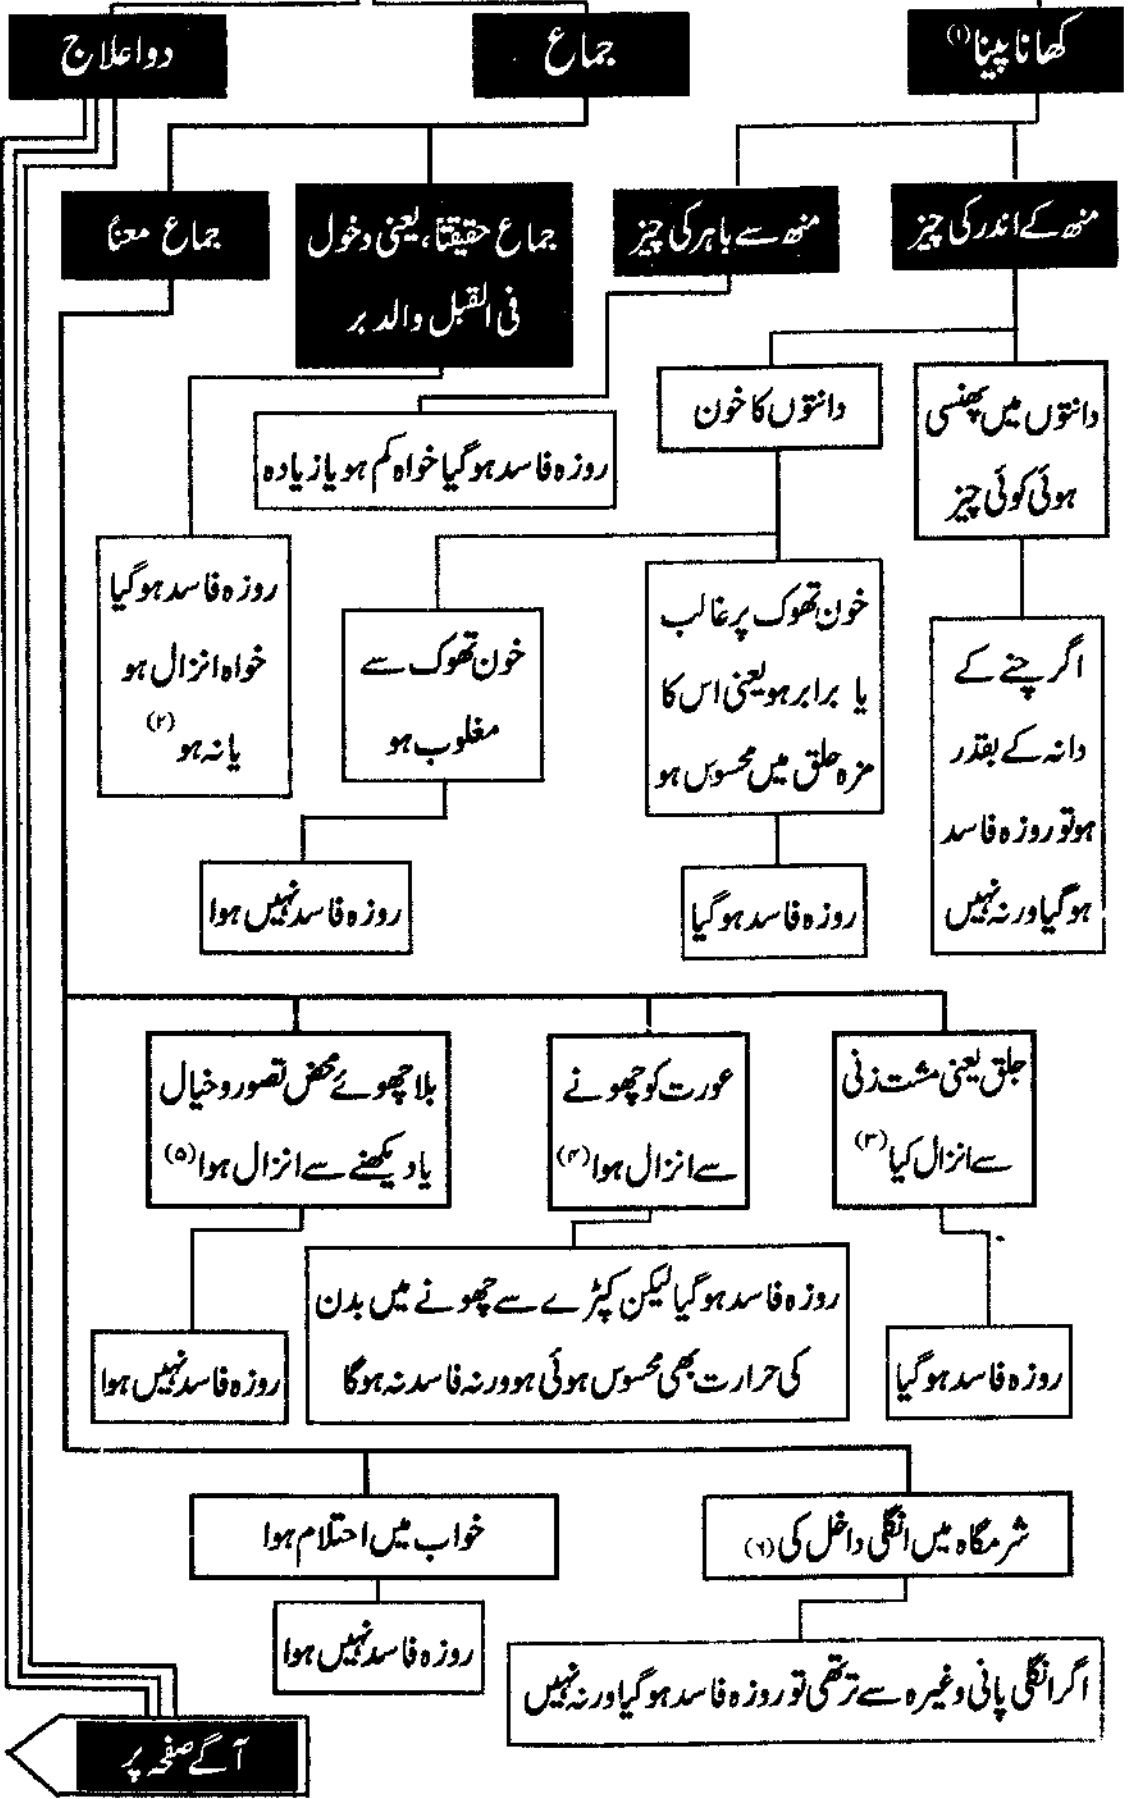 کھانا پینا (۱)
جماع
دوا علاج
منھ کے اندر کی چیز
منھ سے باہر کی چیز
جماع حقیقتاً، یعنی دخول
فی القبل والدبر
جماع معناً
دانتوں میں پھنسی
ہوئی کوئی چیز
دانتوں کا خون
روزہ فاسد ہوگیا خواہ کم ہو یا زیادہ
اگر چنے کے
دانہ کے بقدر
ہو تو روزہ فاسد
ہوگیا ورنہ نہیں
خون تھوک پر غالب
یا برابر ہو یعنی اس کا
مزہ حلق میں محسوس ہو
خون تھوک سے
مغلوب ہو
روزہ فاسد ہوگیا
خواہ انزال ہو
یا نہ ہو (۲)
روزہ فاسد ہوگیا
روزہ فاسد نہیں ہوا
جلق یعنی مشت زنی
سے انزال کیا (۳)
عورت کو چھونے
سے انزال ہوا (۴)
بلا چھوئے محض تصور و خیال
یا دیکھنے سے انزال ہوا (۵)
روزہ فاسد ہوگیا
روزہ فاسد ہوگیا لیکن کپڑے سے چھونے میں بدن
کی حرارت بھی محسوس ہوئی ہو ورنہ فاسد نہ ہوگا
روزہ فاسد نہیں ہوا
شرمگاہ میں انگلی داخل کی (۶)
خواب میں احتلام ہوا
اگر انگلی پانی وغیرہ سے تر تھی تو روزہ فاسد ہوگیا ورنہ نہیں
روزہ فاسد نہیں ہوا
آگے صفحہ پر